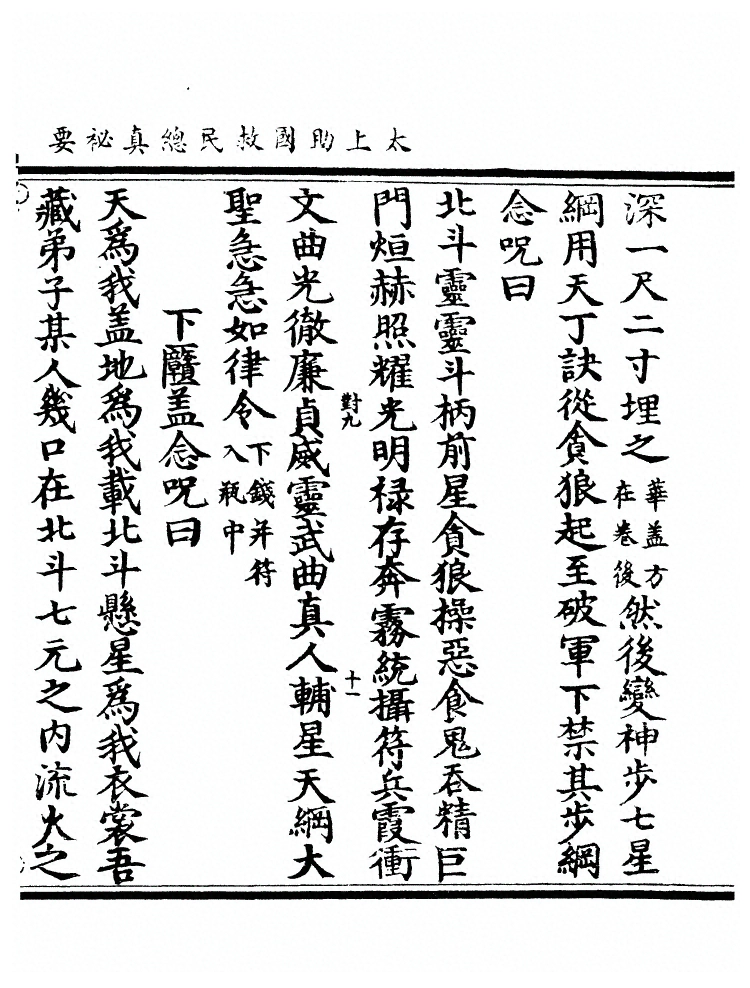 太上助國救民總真祕要
深一尺二寸埋之華盖方在卷後然後變神步七星
綱用天丁訣從貪狼起至破軍下禁其步綱
念咒曰
北斗靈靈斗柄前星貪狼操惡食鬼吞精巨
門烜赫照耀光明禄存奔霧統攝符兵霞衝
對九
十一
文曲光徹廉貞威靈武曲真人輔星天綱大
聖急急如律令下錢并符入瓶中
下隴盖念咒曰
天爲我盖地爲我載北斗懸星爲我衣裳吾
藏弟子某人幾口在北斗七元之内流火之